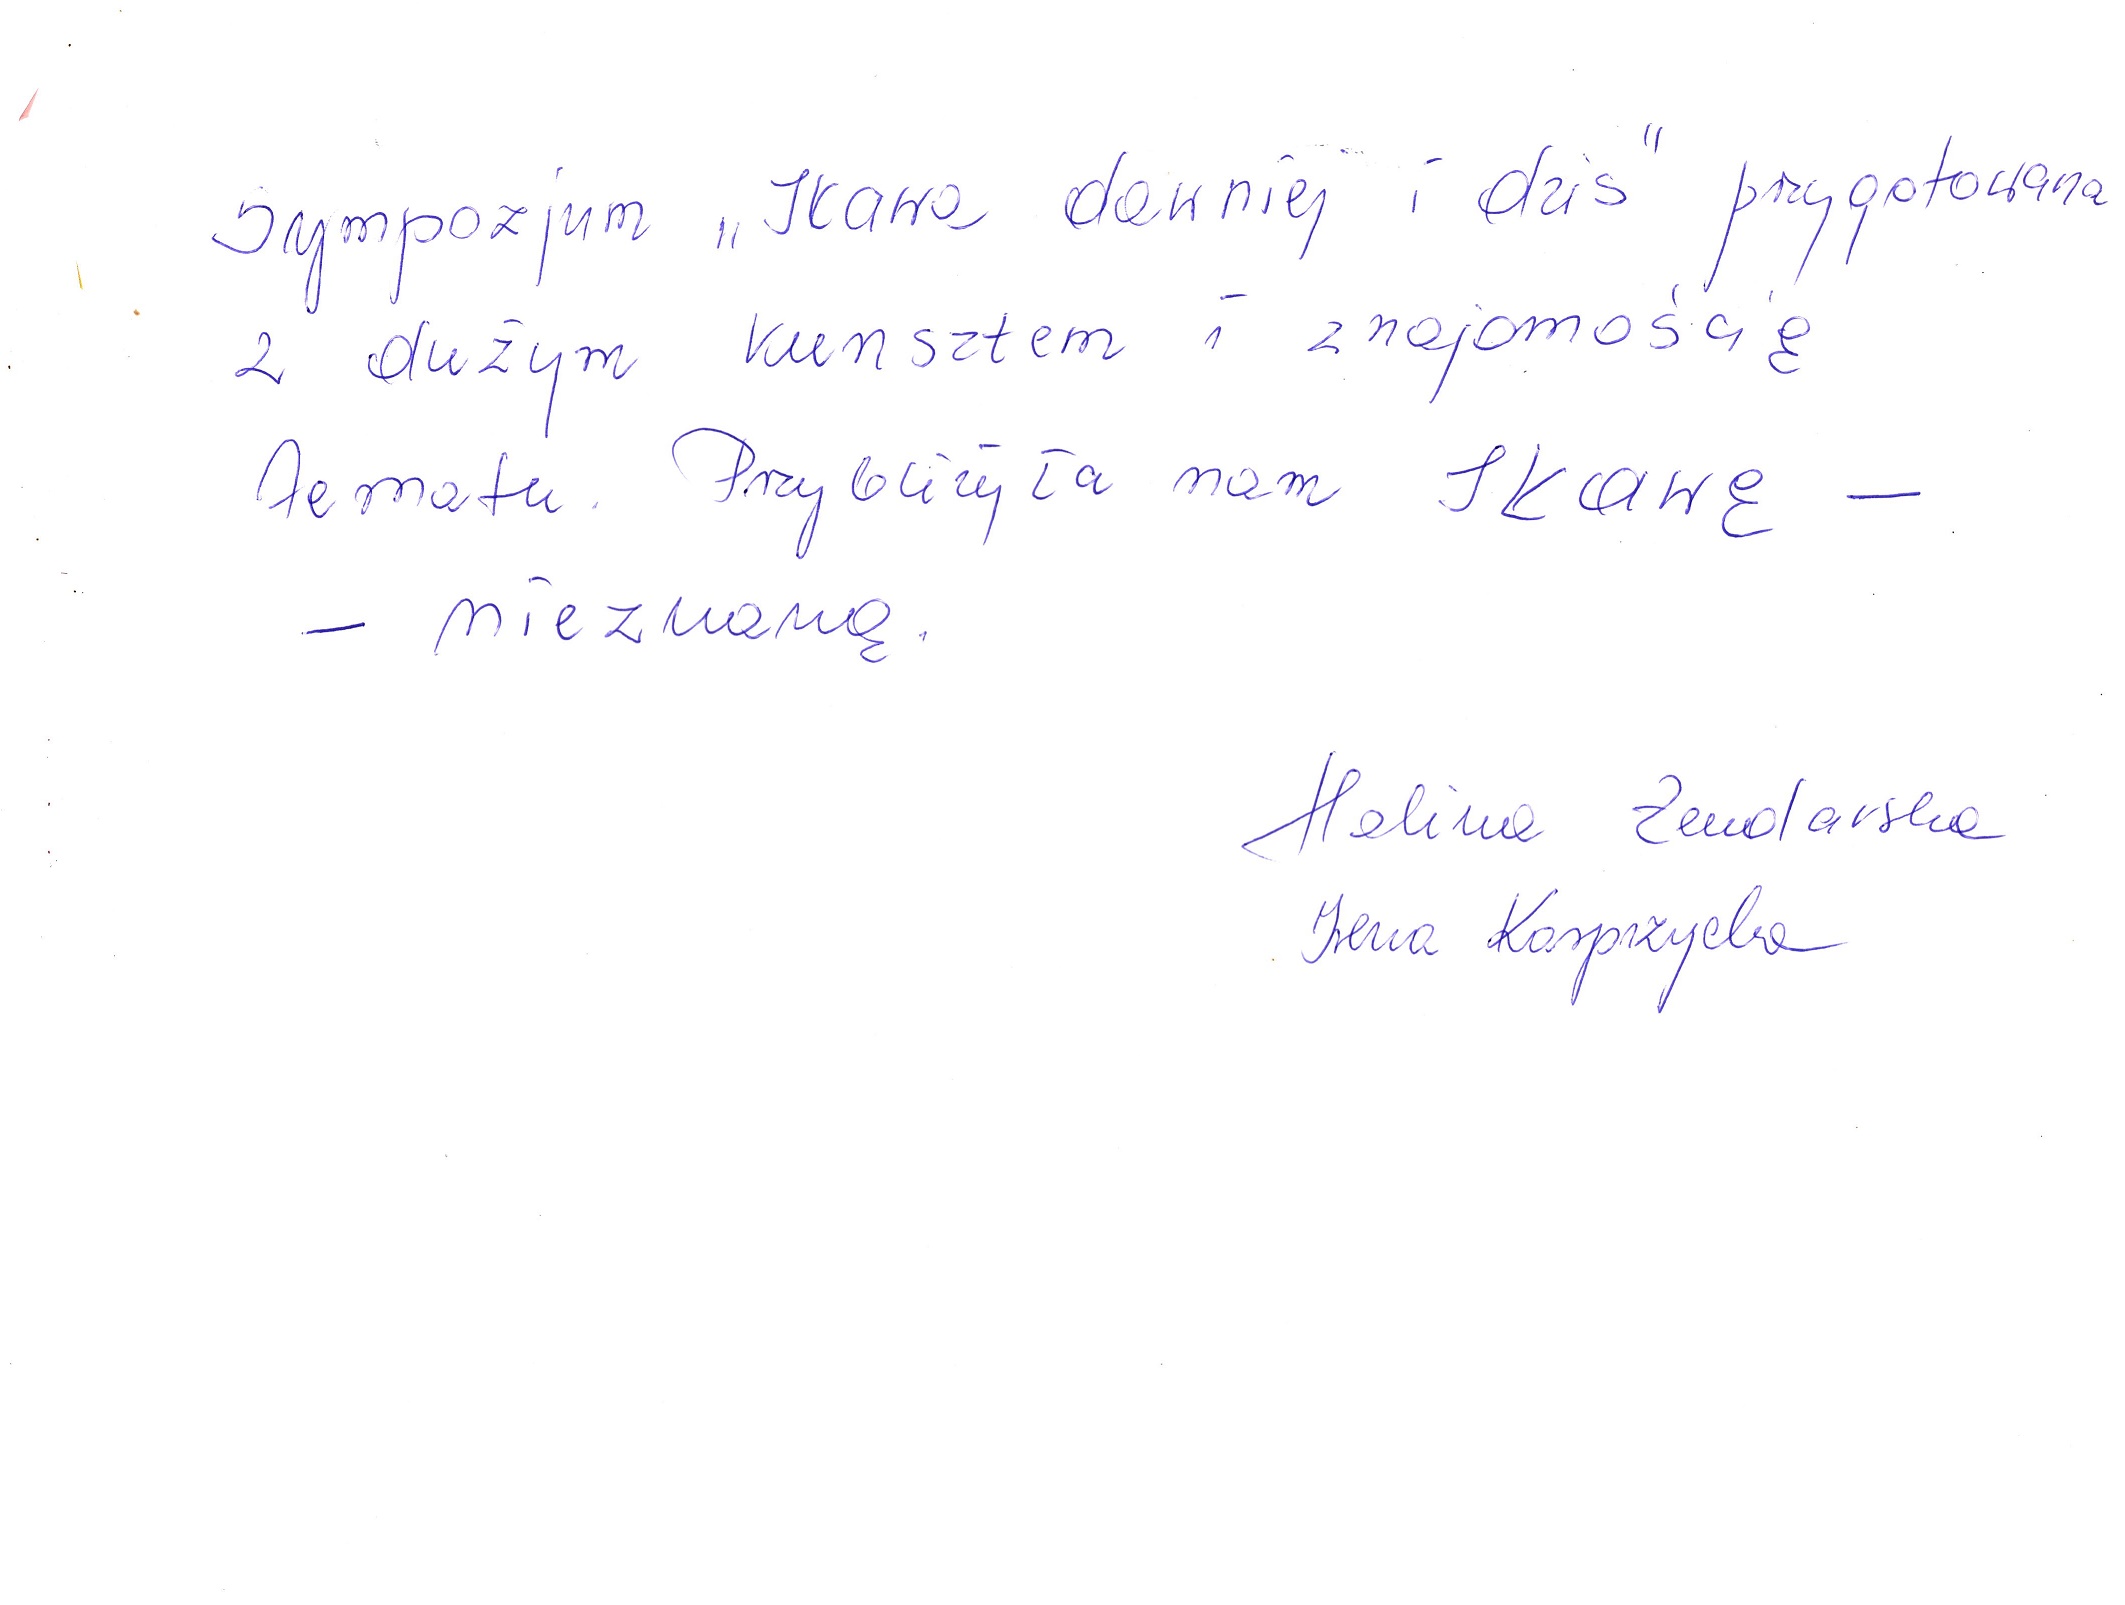 Sympozjum „Iława dawniej i dziś" przygotowana
z dużym kunsztem i znajomością
tematu. Przybliżyła nam Iławę –
– nieznaną.
Halina
Irena Kasprzycka